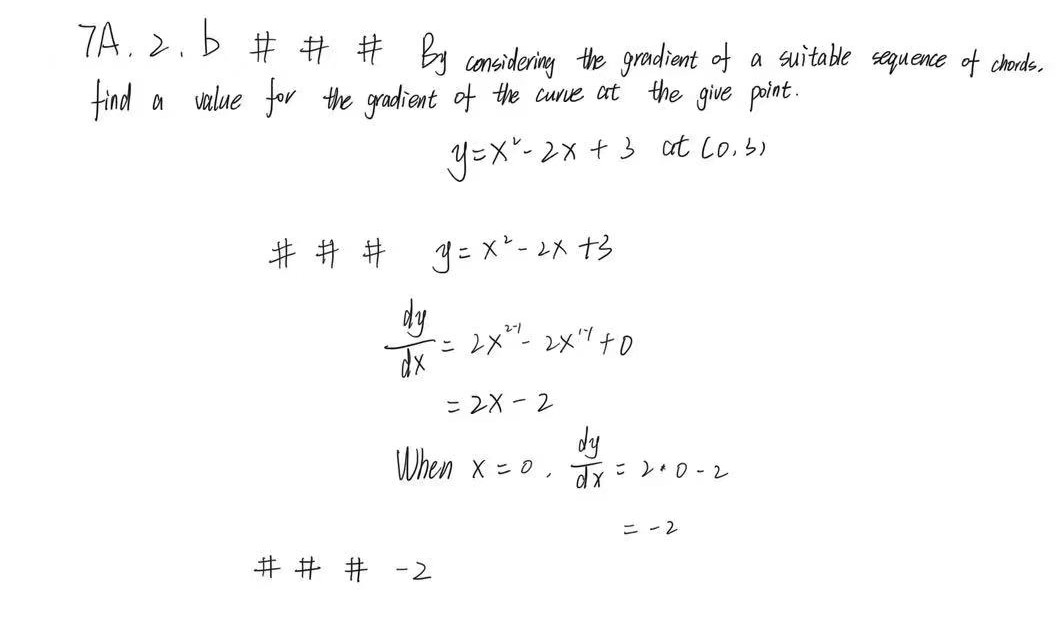 7A. 2. b # # # By considering the gradient of a suitable sequence of chords.
find a value for the gradient of the curve at the give point.
y=x²-2x+3 at (0.3)
# # # y=x²-2x+3
dy/dx = 2x²⁻¹-2x¹⁻¹+0
=2x-2
When x=0. dy/dx = 2*0-2
=-2
# # # -2